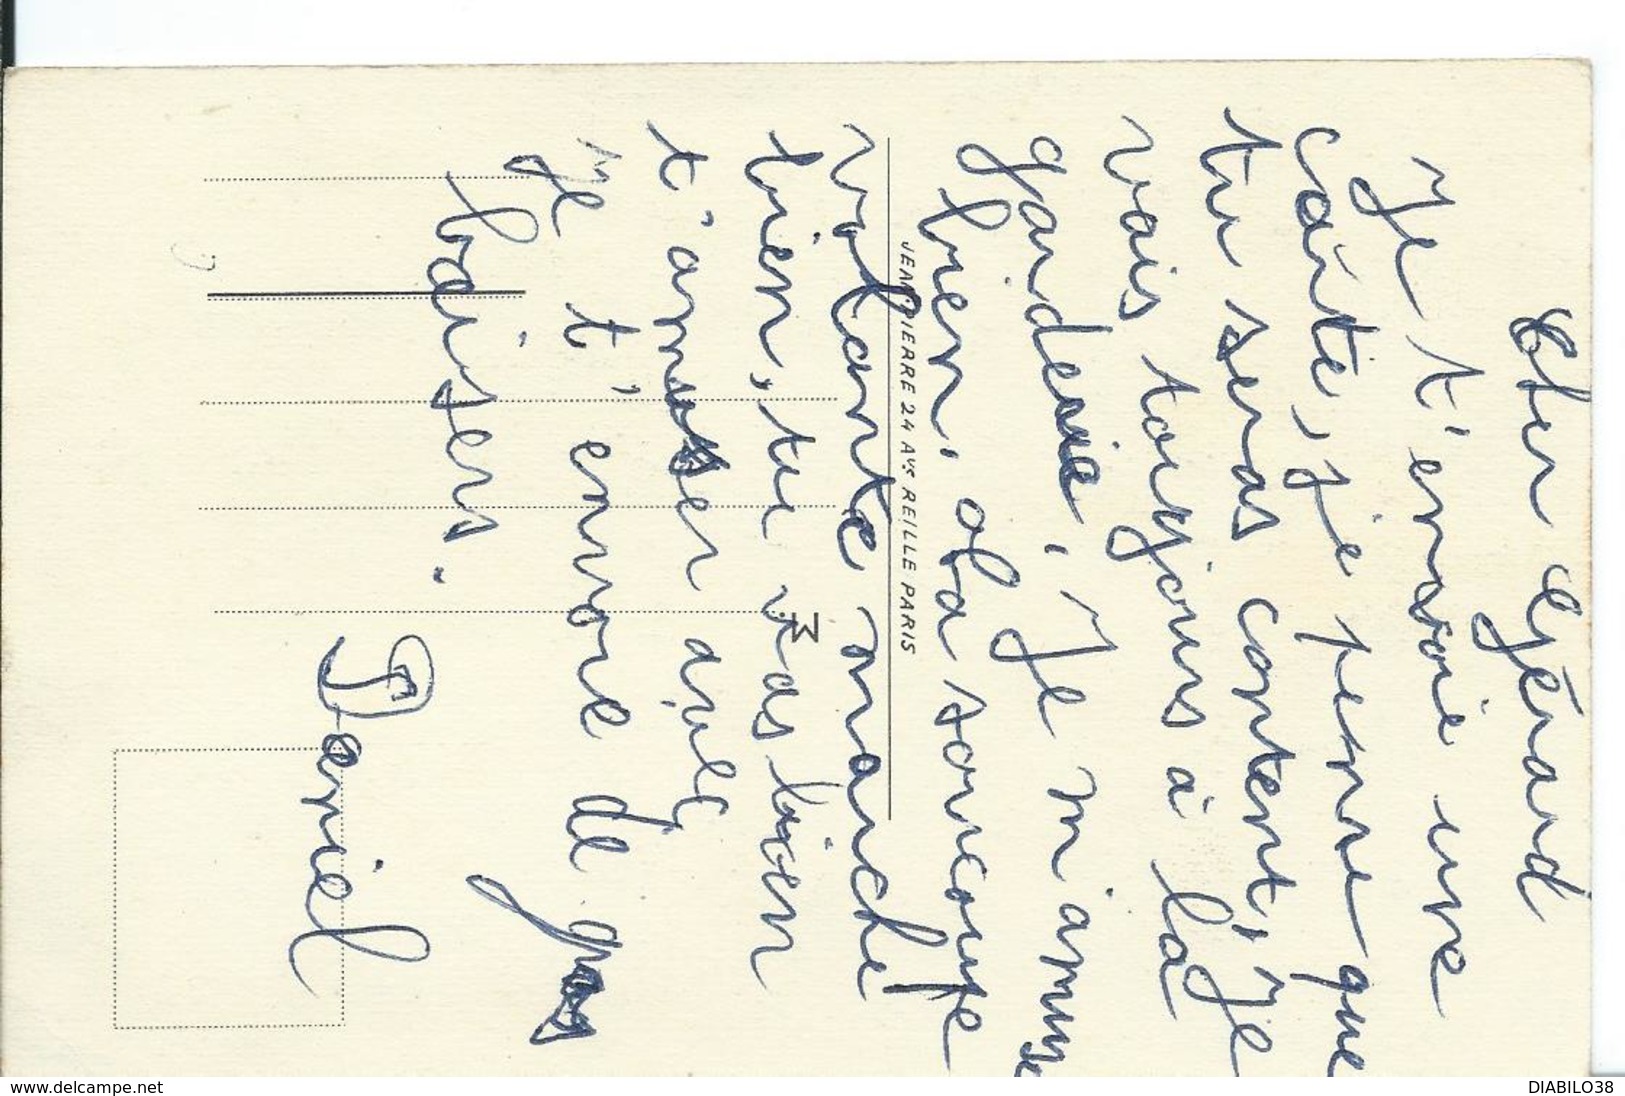 Cher Gérard
Je t'envoie une
carte, je pense que
tu seras content, Je
vais toujours à la
garderie, Je m'amuse
bien, la soucoupe
volante marche
bien, tu vas bien
t'amuser avec,
Je t'envoie de gros
baisers.
Daniel
JEAN PIERRE 24 AVE REILLE PARIS
www.delcampe.net
DIABILO38